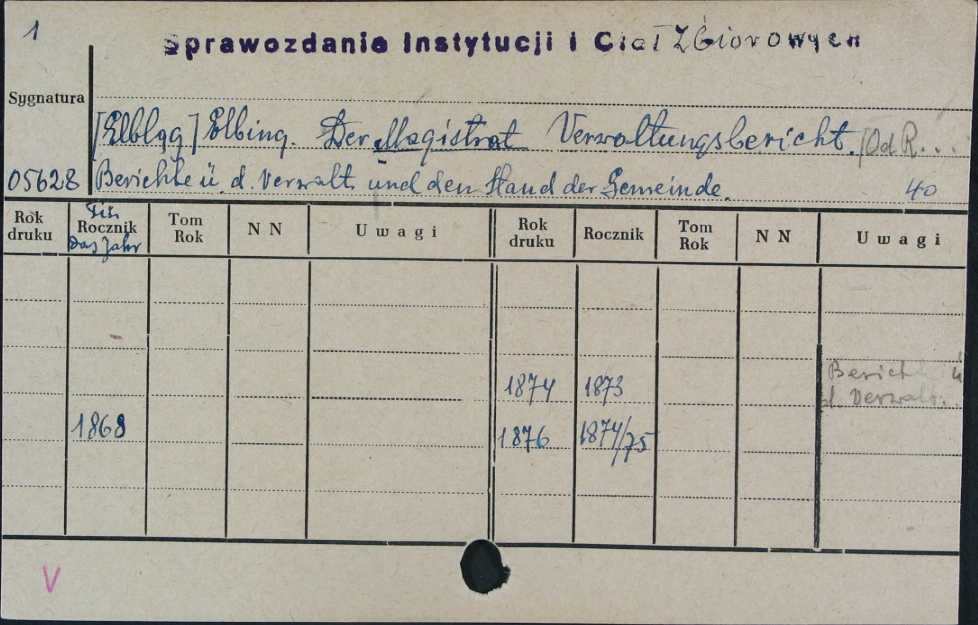 1
Sprawozdania Instytucji i Ciał Zbiorowych
Sygnatura
[Elbląg] Elbing. Der Magistrat Verwaltungsbericht. [Od R...
05628 Berichte ü. d. Verwalt. und den Stand der Gemeinde. 40
Rok druku Rocznik Das Jahr Tom Rok N N Uwagi Rok druku Rocznik Tom Rok N N Uwagi
1874 1873 Bericht ü. d. Verwalt.
1868 1876 1874/75
V